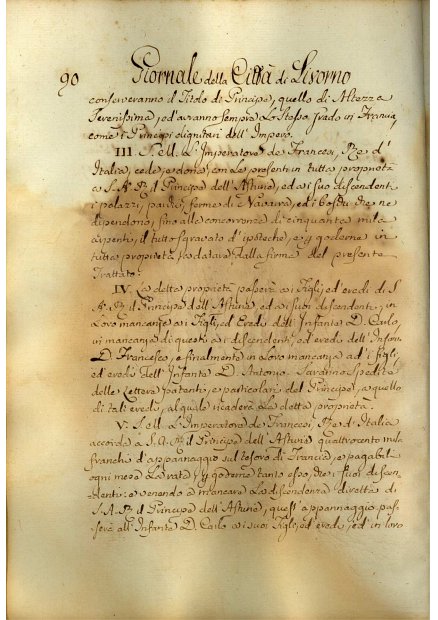 90 Giornale della Città di Livorno
conserveranno il Titolo di Principe, quello di Altezza
Serenissima, ed avranno sempre lo stesso grado in Francia,
come i Principi dignitari dell'Impero.
III. S. M. L'Imperatore de' Francesi, Re d'
Italia, cede, e dona, con le presenti in tutta proprietà
a S. A. R. il Principe dell'Asturie, ed a i suoi discendenti
i palazzi, parchi, ferme di Navarra, ed i boschi che ne
dipendono, fino alla concorrenza di cinquanta mila
arpenti, il tutto sgravato d'ipoteche, e p goderne in
tutta proprietà, la datare dalla firma del presente
Trattato.
IV. La detta proprietà passerà a i Figli, ed eredi di S.
A. R. il Principe dell'Asturie, ed a i suoi discendenti; in
loro mancanza a i Figli, ed Eredi dell'Infante D. Carlo,
in mancanza di questi a i discendenti, ed eredi dell'Infante
D. Francesco, e finalmente in loro mancanza ad i figli,
ed eredi dell'Infante D. Antonio. Saranno spedite
delle Lettere patenti, e particolari del Principe, a quello
di tali eredi, al quale ricaderà la detta proprietà.
V. S. M. L'Imperatore de' Francesi, Re d'Italia
accorda a S. A. R. il Principe dell'Asturie quattrocento mila
franchi d'appannaggio sul tesoro di Francia, e pagabili
ogni mese la rata, p goderne tanto esso, che i suoi discen-
denti: e venendo a mancare la discendenza diretta di
S. A. R. il Principe dell'Asturie, quest'appannaggio pas-
serà all'Infante D. Carlo a i suoi Figli, ed eredi, ed in loro